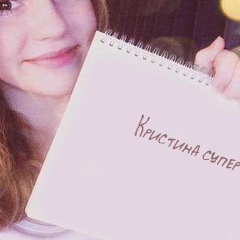 Кристина супер